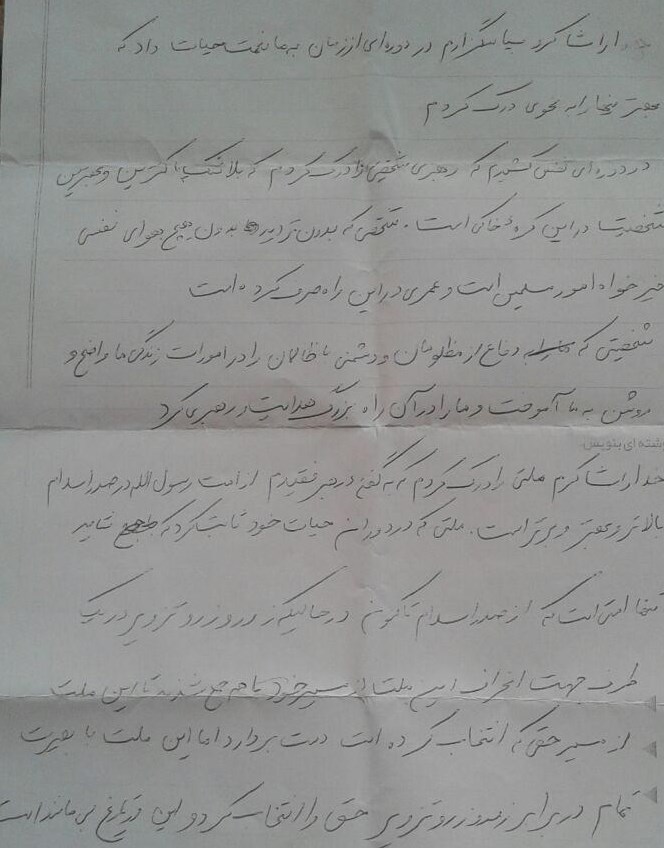 را شاکرو سپاسگزارم در دوره‌ای از زمان به ما نعمت حیات داد که
را به نحوی درک کردم
در دوره ای نفس کشیدم که رهبری شخصی را درک کردم که بلاشک پاکترین و
شخصیتها در این کره خاکی است. شخصی که بدون تردید بدون هیچ هوای نفسی
خیرخواه امور مسلمین است و عمری در این راه صرف کرده است
شخصیتی که دفاع از مظلومان و دشمنی با ظالمان را در امورات زندگی ما واضح و
روشن به ما آموخت و ما را در آن راه بزرگ هدایت و رهبری کرد
رشته ای بنویس.
خدا را شاکرم ملتی را درک کردم که به گفته رهبر فقیدم از امت رسول الله در صدر اسلام
بالاتر و برتر است. ملتی که در دوران حیات خود ثابت کرد که شاید
تنها امتی است که از صدر اسلام تاکنون در حالیکه زر و زور و تزویر در یک
طرف جهت انحراف این ملت از مسیر خود با هم جمع شدند تا این ملت
از مسیر حقی که انتخاب کرده است دست بردارد اما این ملت با بصیرت
تمام در برابر زر و زور و تزویر حق را انتخاب کرد و این در تاریخ بی مانند است